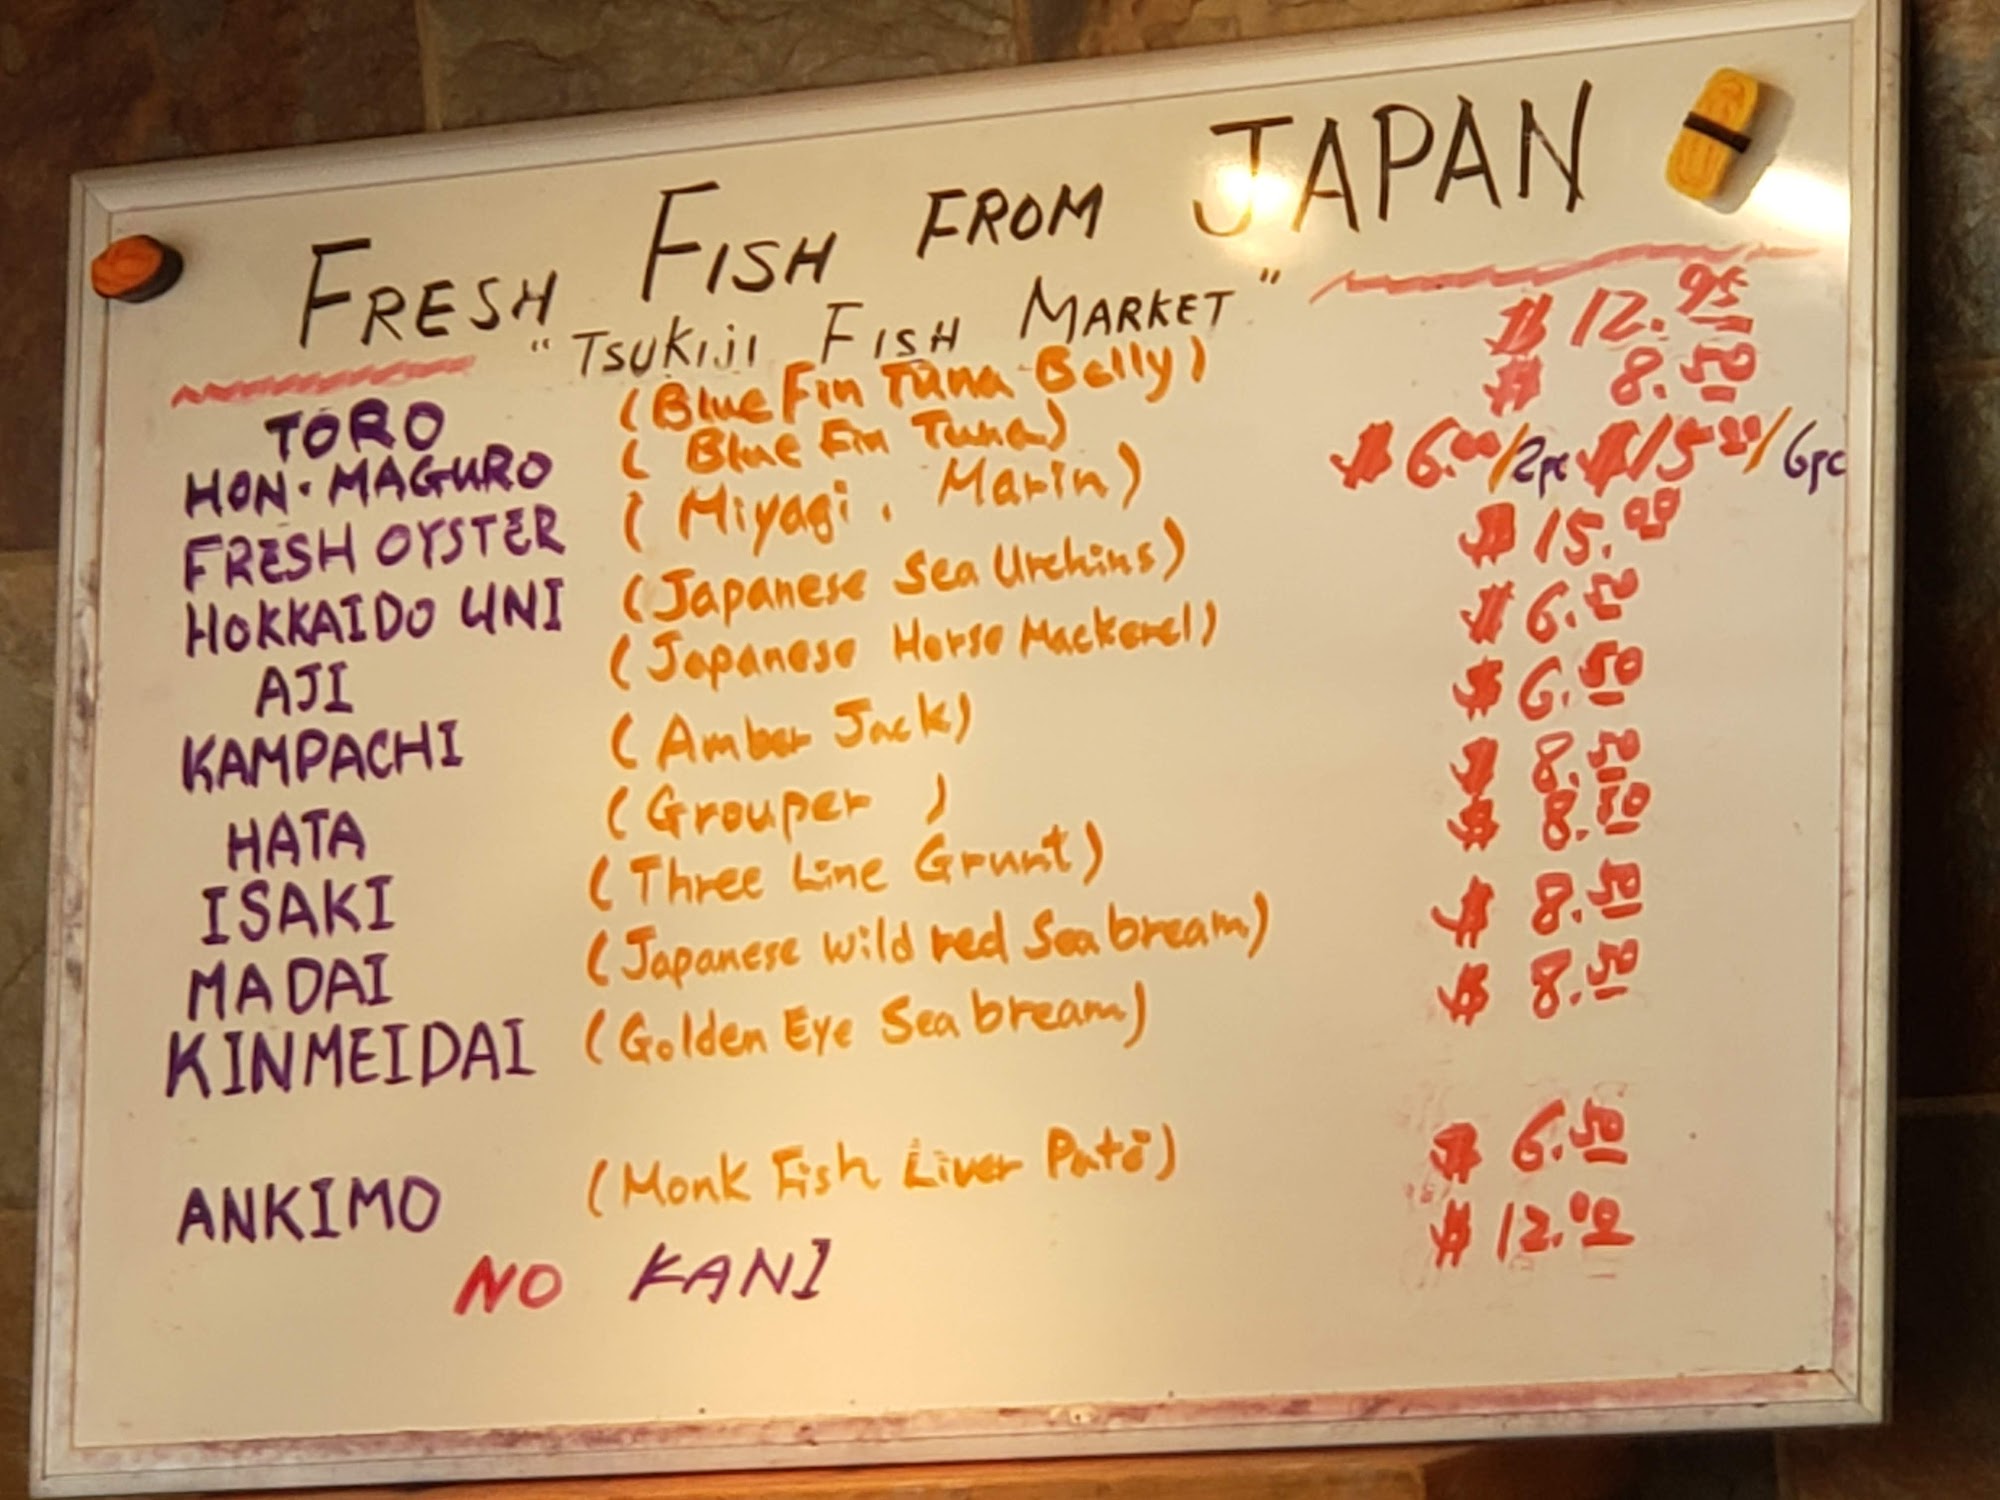 FRESH FISH FROM JAPAN
"TSUKIJI FISH MARKET"
TORO (Blue Fin Tuna Belly) $12.95
HON·MAGURO (Blue Fin Tuna) $8.50
FRESH OYSTER (Miyagi, Marin) $6.00/2pc $15.50/6pc
HOKKAIDO UNI (Japanese Sea Urchins) $15.00
AJI (Japanese Horse Mackerel) $6.50
KAMPACHI (Amber Jack) $6.50
HATA (Grouper) $8.50
ISAKI (Three Line Grunt) $8.50
MADAI (Japanese wild red Sea bream) $8.50
KINMEIDAI (Golden Eye Sea bream) $8.50
ANKIMO (Monk Fish Liver Pate) $6.50
NO KANI $12.00